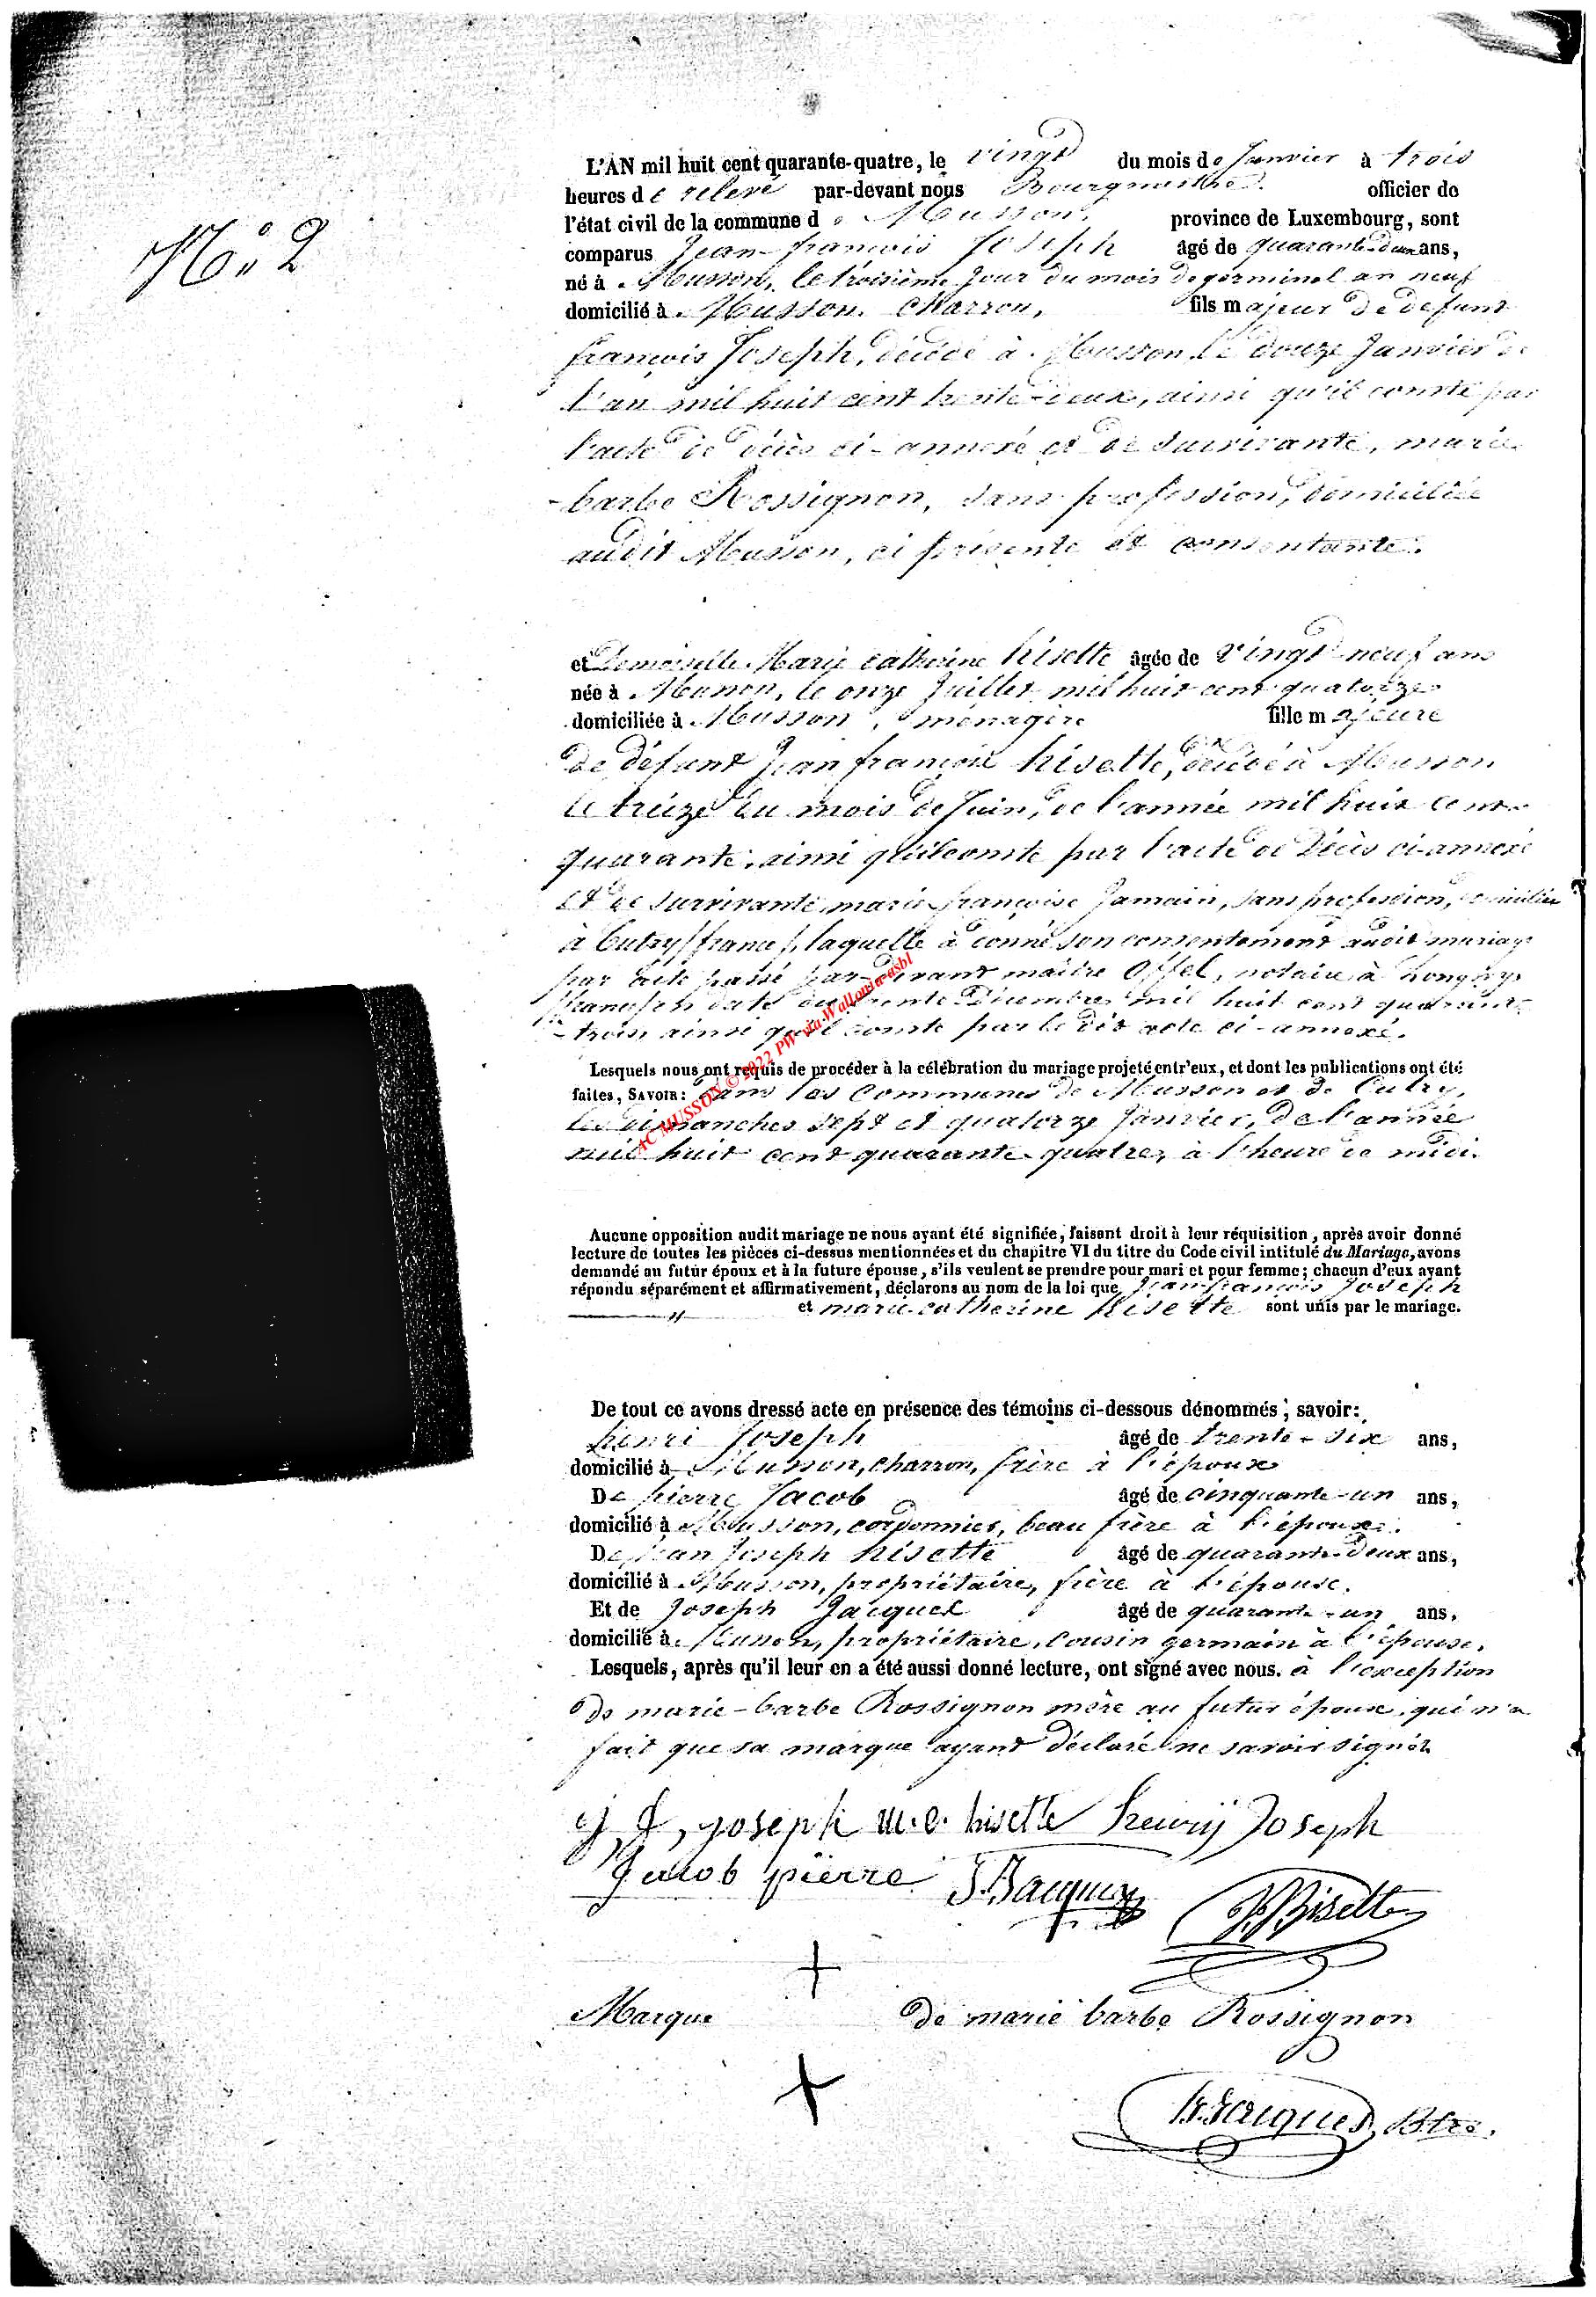 N.° 2
L'AN mil huit cent quarante-quatre, le vingt du mois de Janvier à trois
heures de relevé par-devant nous Bourgmestre officier de
l'état civil de la commune de Musson, province de Luxembourg, sont
comparus Jean-françois Joseph âgé de quarante-deux ans,
né à Musson, le troisième jour du mois de germinal an neuf
domicilié à Musson, charron, fils majeur de defunt
françois Joseph, décédé à Musson le douze Janvier de
l'an mil huit cent trente-deux, ainsi qu'il conste par
l'acte de décès ci-annexé et de survivante, marie
-barbe Rossignon, sans profession, domiciliée
audit Musson, ci présente et consentante.
et Demoiselle Marie catherine hisette âgée de vingt-neuf ans
née à Musson, le onze Juillet mil huit cent quatorze
domiciliée à Musson, ménagère fille majeure
de défunt Jean françois hisette, décédé à Musson
le treize du mois de Juin, de l'année mil huit cent
quarante, ainsi qu'il conste par l'acte de décès ci-annexé
et de survivante marie françoise Jamain, sans profession, domiciliée
à Cutry /france/, laquelle à donné son consentement audit mariage
par acte passé par-devant maître Offel, notaire à Longwy
/france/ en date du trente Décembre mil huit cent quarante
-trois, ainsi qu'il conste par le dit acte ci-annexé.
Lesquels nous ont requis de procéder à la célébration du mariage projeté entr'eux, et dont les publications ont été
faites, SAVOIR: Dans les communes de Musson et de Cutry,
les dimanches sept et quatorze Janvier, de l'année
mil huit cent quarante-quatre, à l'heure de midi.
Aucune opposition audit mariage ne nous ayant été signifiée, faisant droit à leur réquisition, après avoir donné
lecture de toutes les pièces ci-dessus mentionnées et du chapitre VI du titre du Code civil intitulé du Mariage, avons
demandé au futur époux et à la future épouse, s'ils veulent se prendre pour mari et pour femme; chacun d'eux ayant
répondu séparément et affirmativement, déclarons au nom de la loi que Jean françois Joseph
et marie-catherine hisette sont unis par le mariage.
De tout ce avons dressé acte en présence des témoins ci-dessous dénommés; savoir:
henri Joseph âgé de trente-six ans,
domicilié à Musson, charron, frère à l'époux
De pierre Jacob âgé de cinquante-un ans,
domicilié à Musson, cordonnier, beau frère à l'époux.
De Jean Joseph hisette âgé de quarante-deux ans,
domicilié à Musson, propriétaire, frère à l'épouse.
Et de Joseph Jacques âgé de quarante-un ans,
domicilié à Musson, propriétaire, cousin germain à l'épouse.
Lesquels, après qu'il leur en a été aussi donné lecture, ont signé avec nous. à l'exception
de marie-barbe Rossignon mère au futur époux, qui n'a
fait que sa marque ayant déclaré ne savoir signer
j, f, joseph m.c. hisette henrÿ Joseph
Jacob piërre J. Jacques JJhisette
Marque de marie barbe Rossignon
Jacques, Btre.
AC MUSSON © 2022 PW via Wallonia asbl